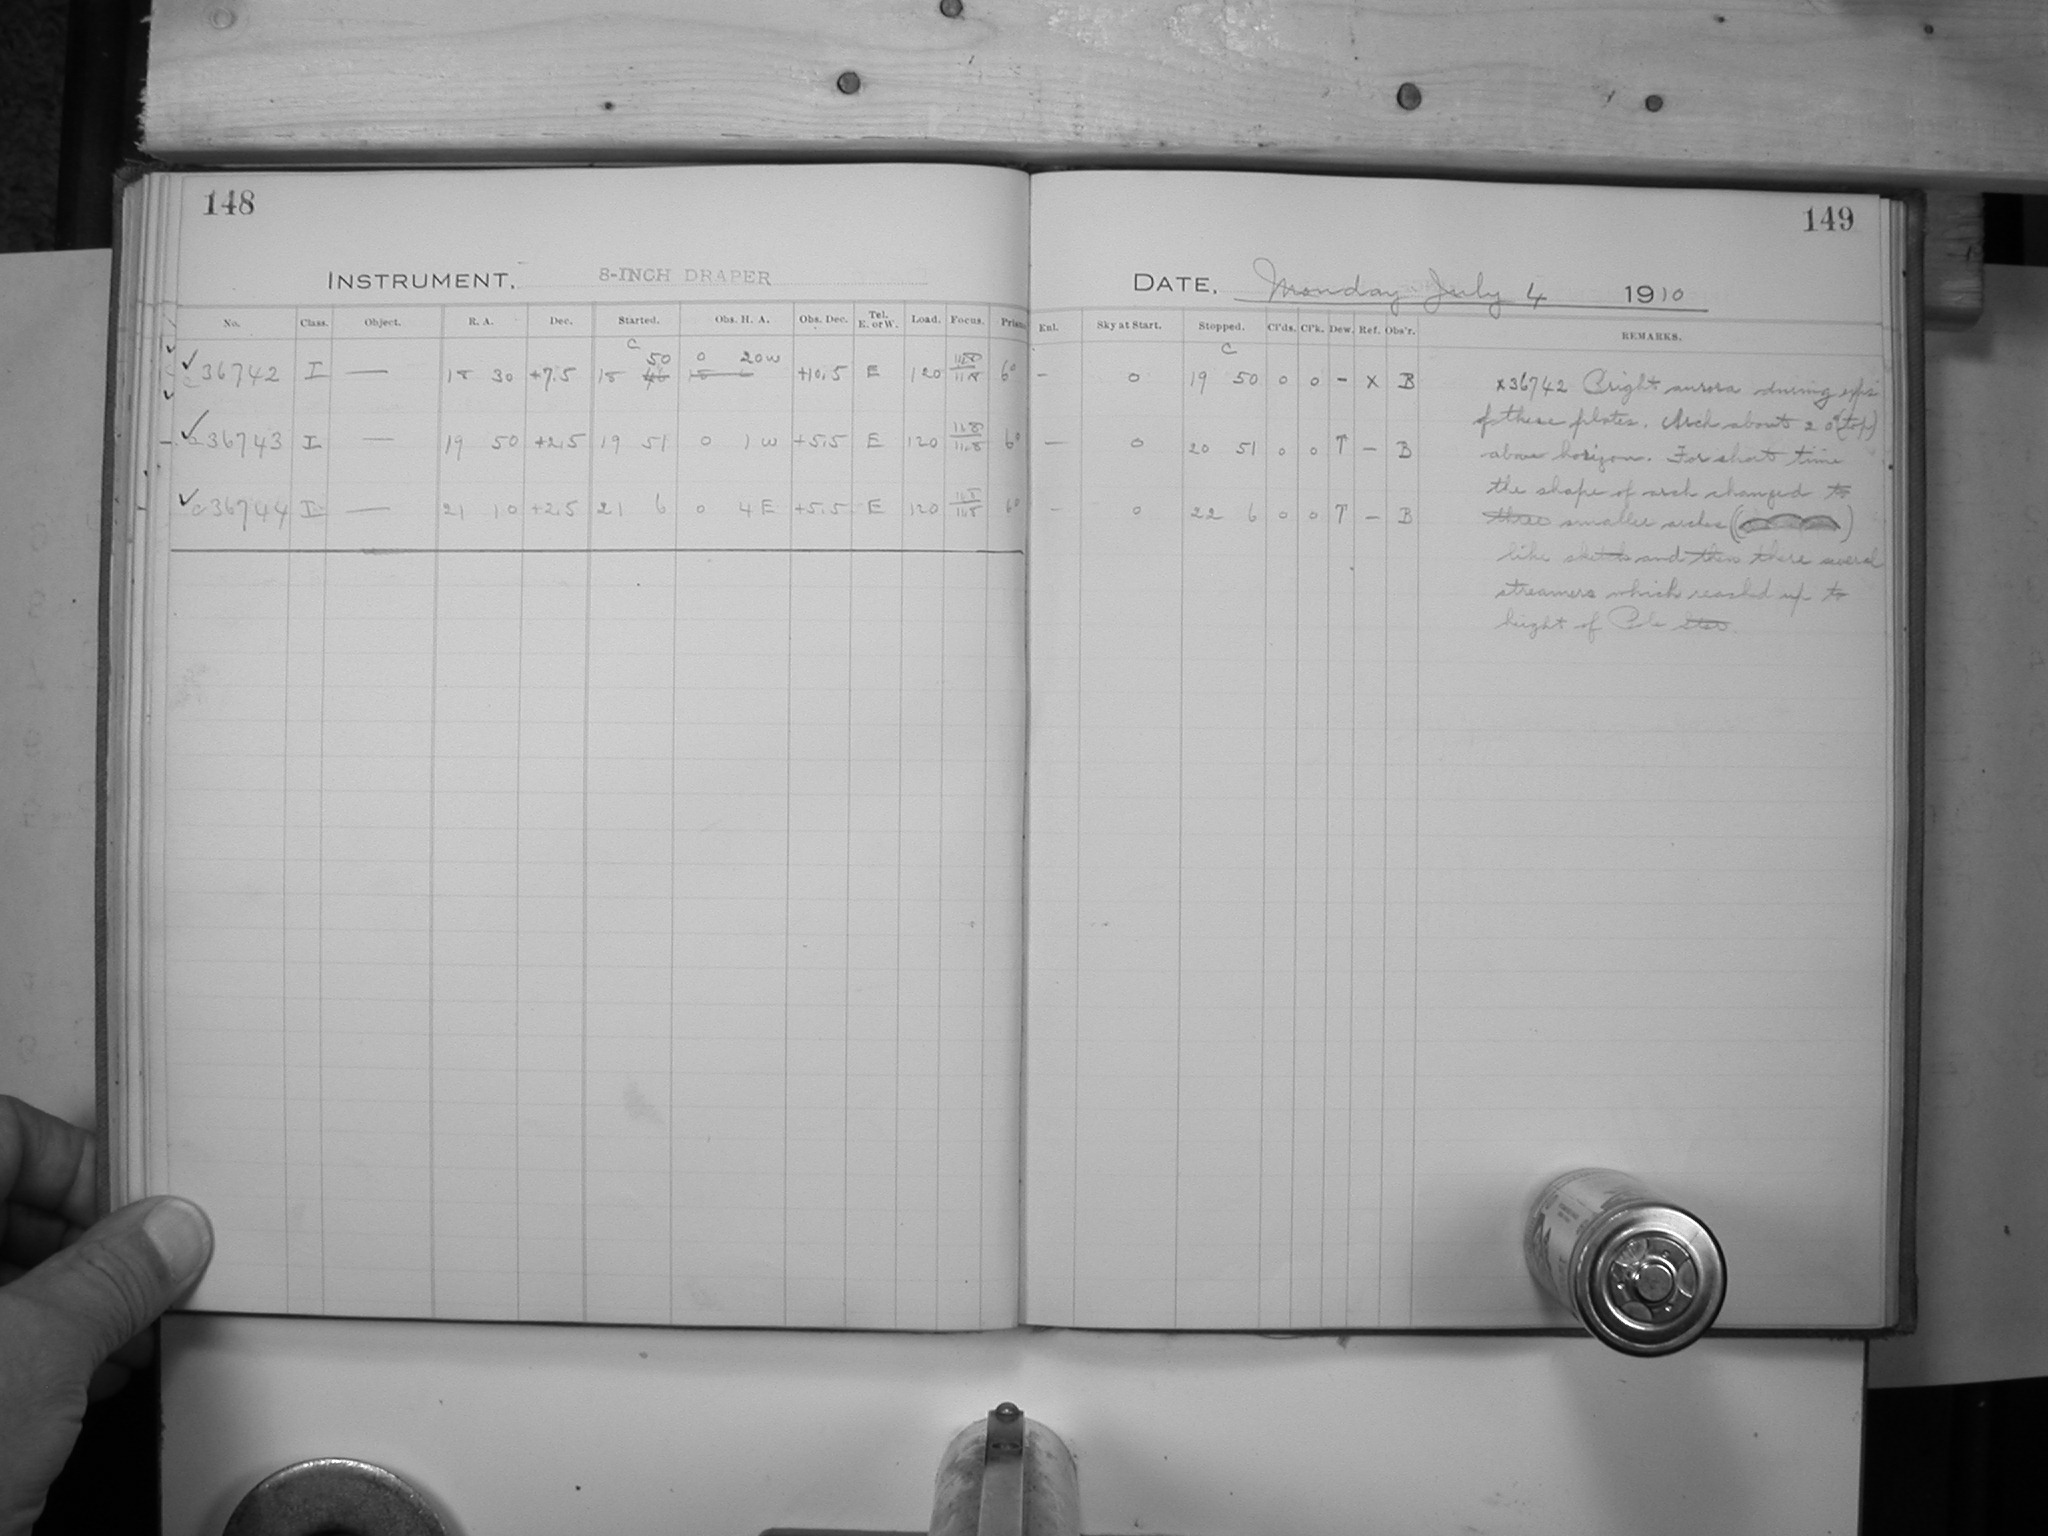 148
149
INSTRUMENT. 8-INCH DRAPER
DATE. Monday July 4 1910
No. Class. Object. R. A. Dec. Started. Obs. H. A. Obs. Dec. Tel. E. or W. Load. Focus. Prism
Enl. Sky at Start. Stopped. Cl'ds. Cl'k. Dew. Ref. Obs'r. REMARKS.
C C
50 0 20W
c36742 I — 18 30 +7.5 18 +10.5 E 120 11.8 6° - 0 19 50 0 0 - x B
c36743 I — 19 50 +2.5 19 51 0 1 W +5.5 E 120 11.8 6° — 0 20 51 0 0 ↑ - B
c36744 I — 21 10 +2.5 21 6 0 4 E +5.5 E 120 11.8 6° - 0 22 6 0 0 ↑ - B
x36742 Bright aurora during exps
of these plates. Arch about 20° (top)
above horizon. For short time
the shape of arch changed to
three smaller arches ( )
like sketch and then there several
streamers which reached up to
height of Pole Star.